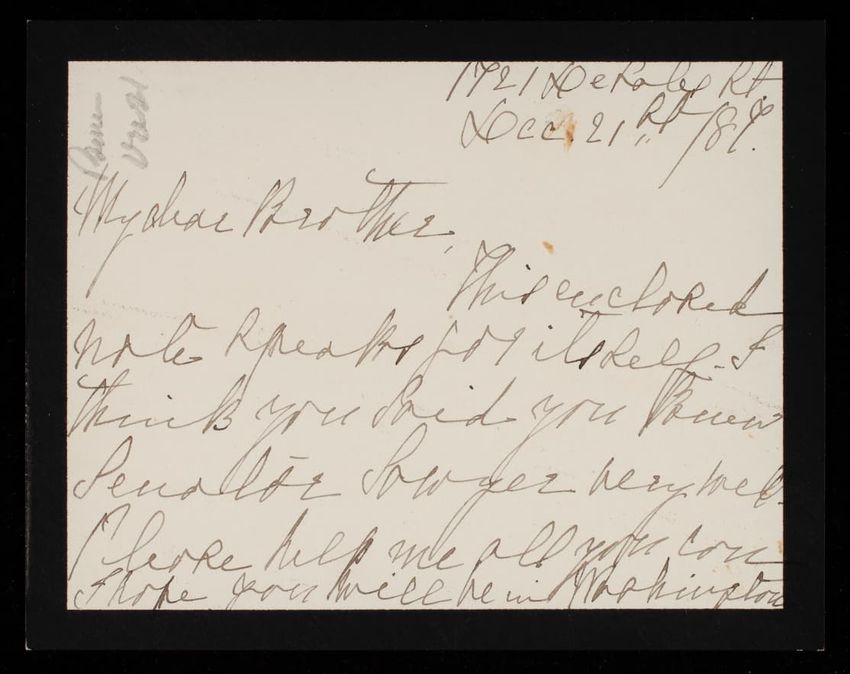 1721 DeSales St.
Dec. 21st /89.
My dear Brother,
This enclosed
note speaks for itself. I
think you said you knew
Senator Sawyer very well.
Please help me all you can
I hope you will be in Washington